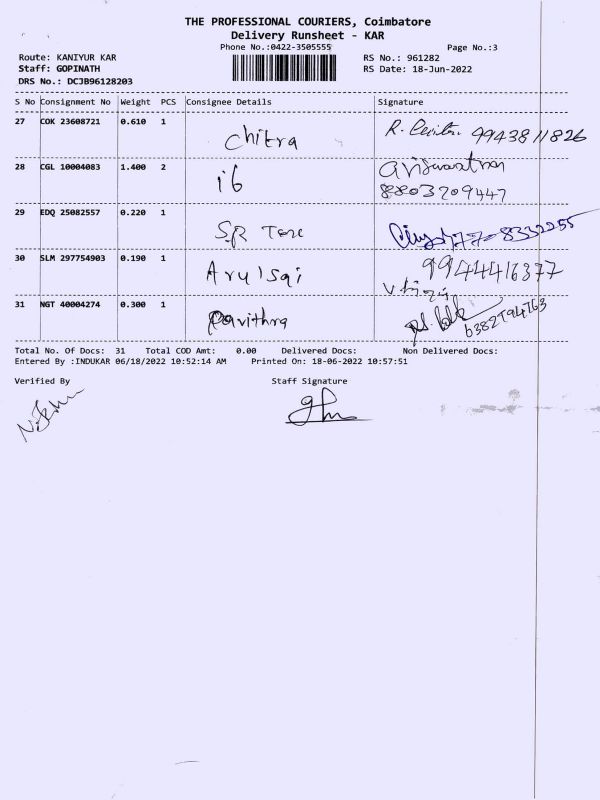 THE PROFESSIONAL COURIERS, Coimbatore
Delivery Runsheet - KAR
Phone No.:0422-3505555 Page No.:3
Route: KANIYUR KAR RS No.: 961282
Staff: GOPINATH RS Date: 18-Jun-2022
DRS No.: DCJB96128203
S No Consignment No Weight PCS Consignee Details Signature
27 COK 23608721 0.610 1 Chitra R. 9943811826
28 CGL 10004083 1.400 2 i6
8803209447
29 EDQ 25082557 0.220 1 SR 8332255
30 SLM 297754903 0.190 1 Arulsai 9944416377
31 NGT 40004274 0.300 1 Pavithra
Total No. Of Docs: 31 Total COD Amt: 0.00 Delivered Docs: Non Delivered Docs:
Entered By :INDUKAR 06/18/2022 10:52:14 AM Printed On: 18-06-2022 10:57:51
Verified By Staff Signature